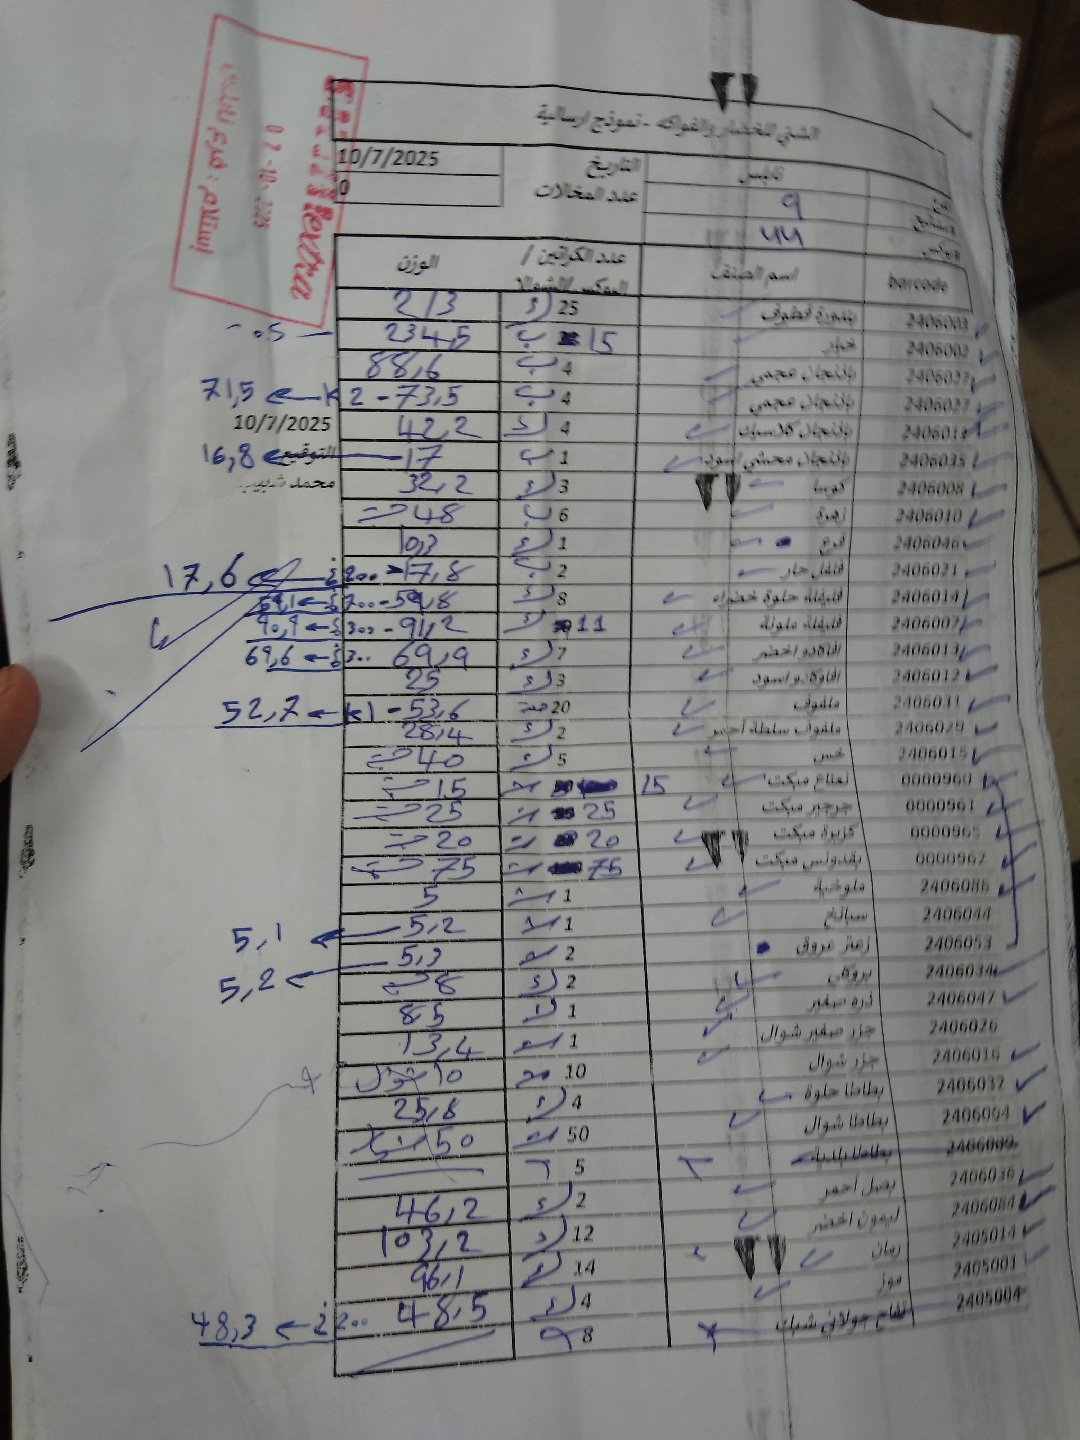 الشني للخضار والفواكه - نموذج ارسالية
نابلس التاريخ 10/7/2025
9 عدد المخالات 0
44
barcode اسم الصنف عدد الكراتين / البوكس/الشوال الوزن
2406003 بندورة قطوف 25 213
2406002 خيار 15 234,5
2406027 باذنجان عجمي 4 88,6
2406027 باذنجان عجمي 4 73,5 - 2 K ← 71,5
باذنجان كلاسيك 4 42,2 10/7/2025
2406035 باذنجان محشي اسود 1 17 التوقيع 16,8
2406008 كوسا 3 32,2 محمد شبيب
2406010 زهرة 6 48
2406046 قرع 1 10,3
2406021 فلفل حار 2 17,8 200 غ ← 17,6
2406014 فليفلة حلوة خضراء 8 59,8 - 700 غ ← 59,1
2406007 فليفلة ملونة 11 91,2 - 300 غ ← 90,9
2406013 افاكادو اخضر 7 69,9 300 غ ← 69,6
2406012 افاوكادو اسود 3 25
2406031 ملفوف 20 53,6 - 1 K ← 52,7
2406029 ملفوف سلطة احمر 2 28,4
2406015 خس 5 40
0000960 نعناع مبكت 15 15
0000961 جرجير مبكت 25 25
0000965 كزبرة مبكت 20 20
0000962 بقدونس مبكت 75 75
2406086 ملوخية 1 5
2406044 سبانخ 1 5,2 ← 5,1
2406053 زعتر عروق 2 5,3 ← 5,2
2406034 بروكلي 2 8
2406047 ذره صغير 1 85
2406026 جزر صغير شوال 1 13,4
2406016 جزر شوال 10 10
2406032 بطاطا حلوة 4 25,8
2406004 بطاطا شوال 50 50
2406009 بطاطا بلدية 5
2406036 بصل احمر 2 46,2
2406084 ليمون اخضر 12 103,2
2405014 رمان 14 96,1
2405001 موز 4 48,5 200 غ ← 48,3
2405004 تفاح جولاني شباك 8
extra
07-10-2025